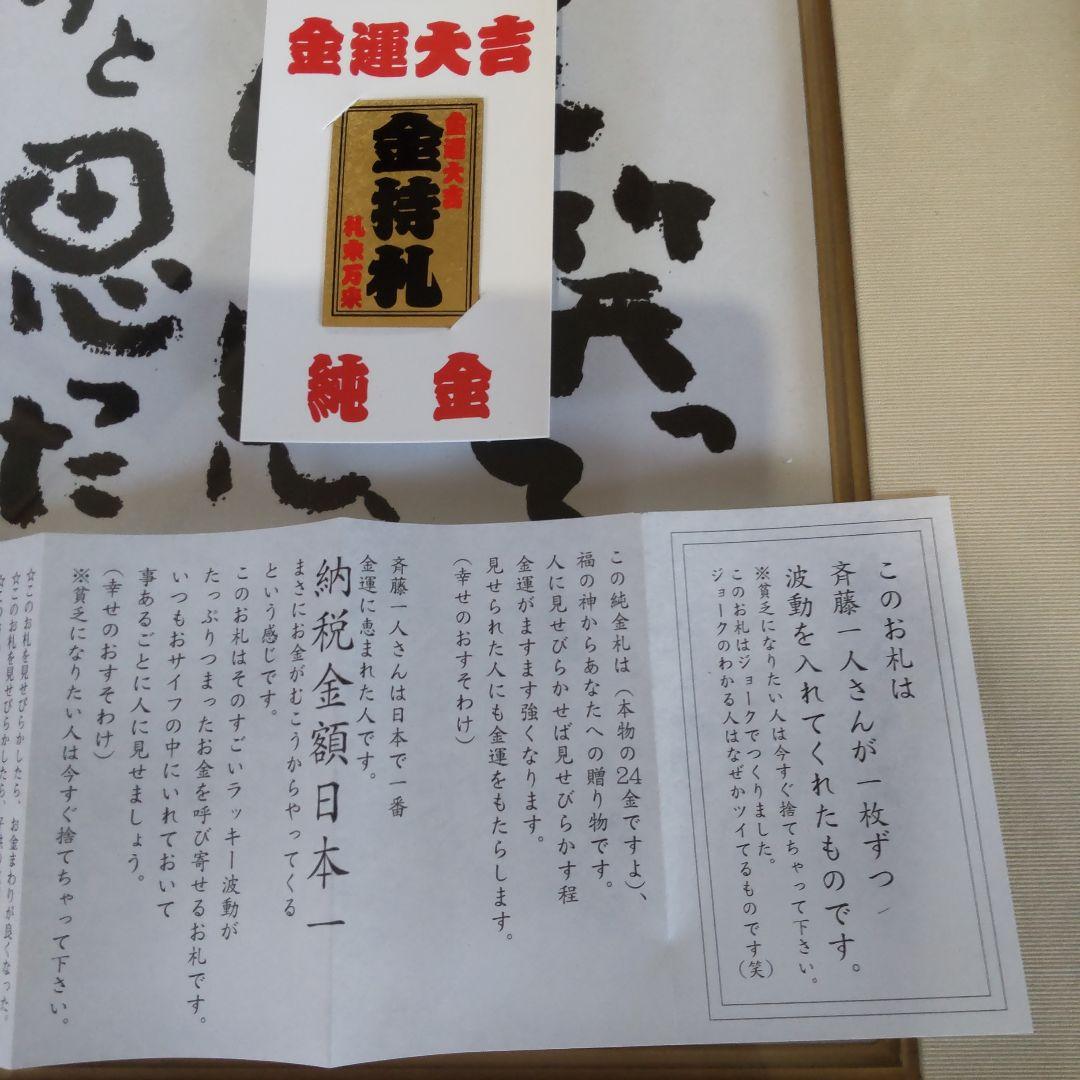 金運大吉
金運大吉
金持札
札束万来
純金
と
思
った
て
このお札は
斉藤一人さんが一枚ずつ
波動を入れてくれたものです。
※貧乏になりたい人は今すぐ捨てちゃって下さい。
このお札はジョークでつくりました。
ジョークのわかる人はなぜかツイてるものです(笑)
この純金札は(本物の24金ですよ)、
福の神からあなたへの贈り物です。
人に見せびらかせば見せびらかす程
金運がますます強くなります。
見せられた人にも金運をもたらします。
(幸せのおすそわけ)
斉藤一人さんは日本で一番
金運に恵まれた人です。
納税金額日本一
まさにお金がむこうからやってくる
という感じです。
このお札はそのすごいラッキー波動が
たっぷりつまったお金を呼び寄せるお札です。
いつもおサイフの中にいれておいて
事あるごとに人に見せましょう。
(幸せのおすそわけ)
※貧乏になりたい人は今すぐ捨てちゃって下さい。
☆このお札を見せびらかしたら、お金まわりが良くなった。
☆このお札を見せびらかしたら、